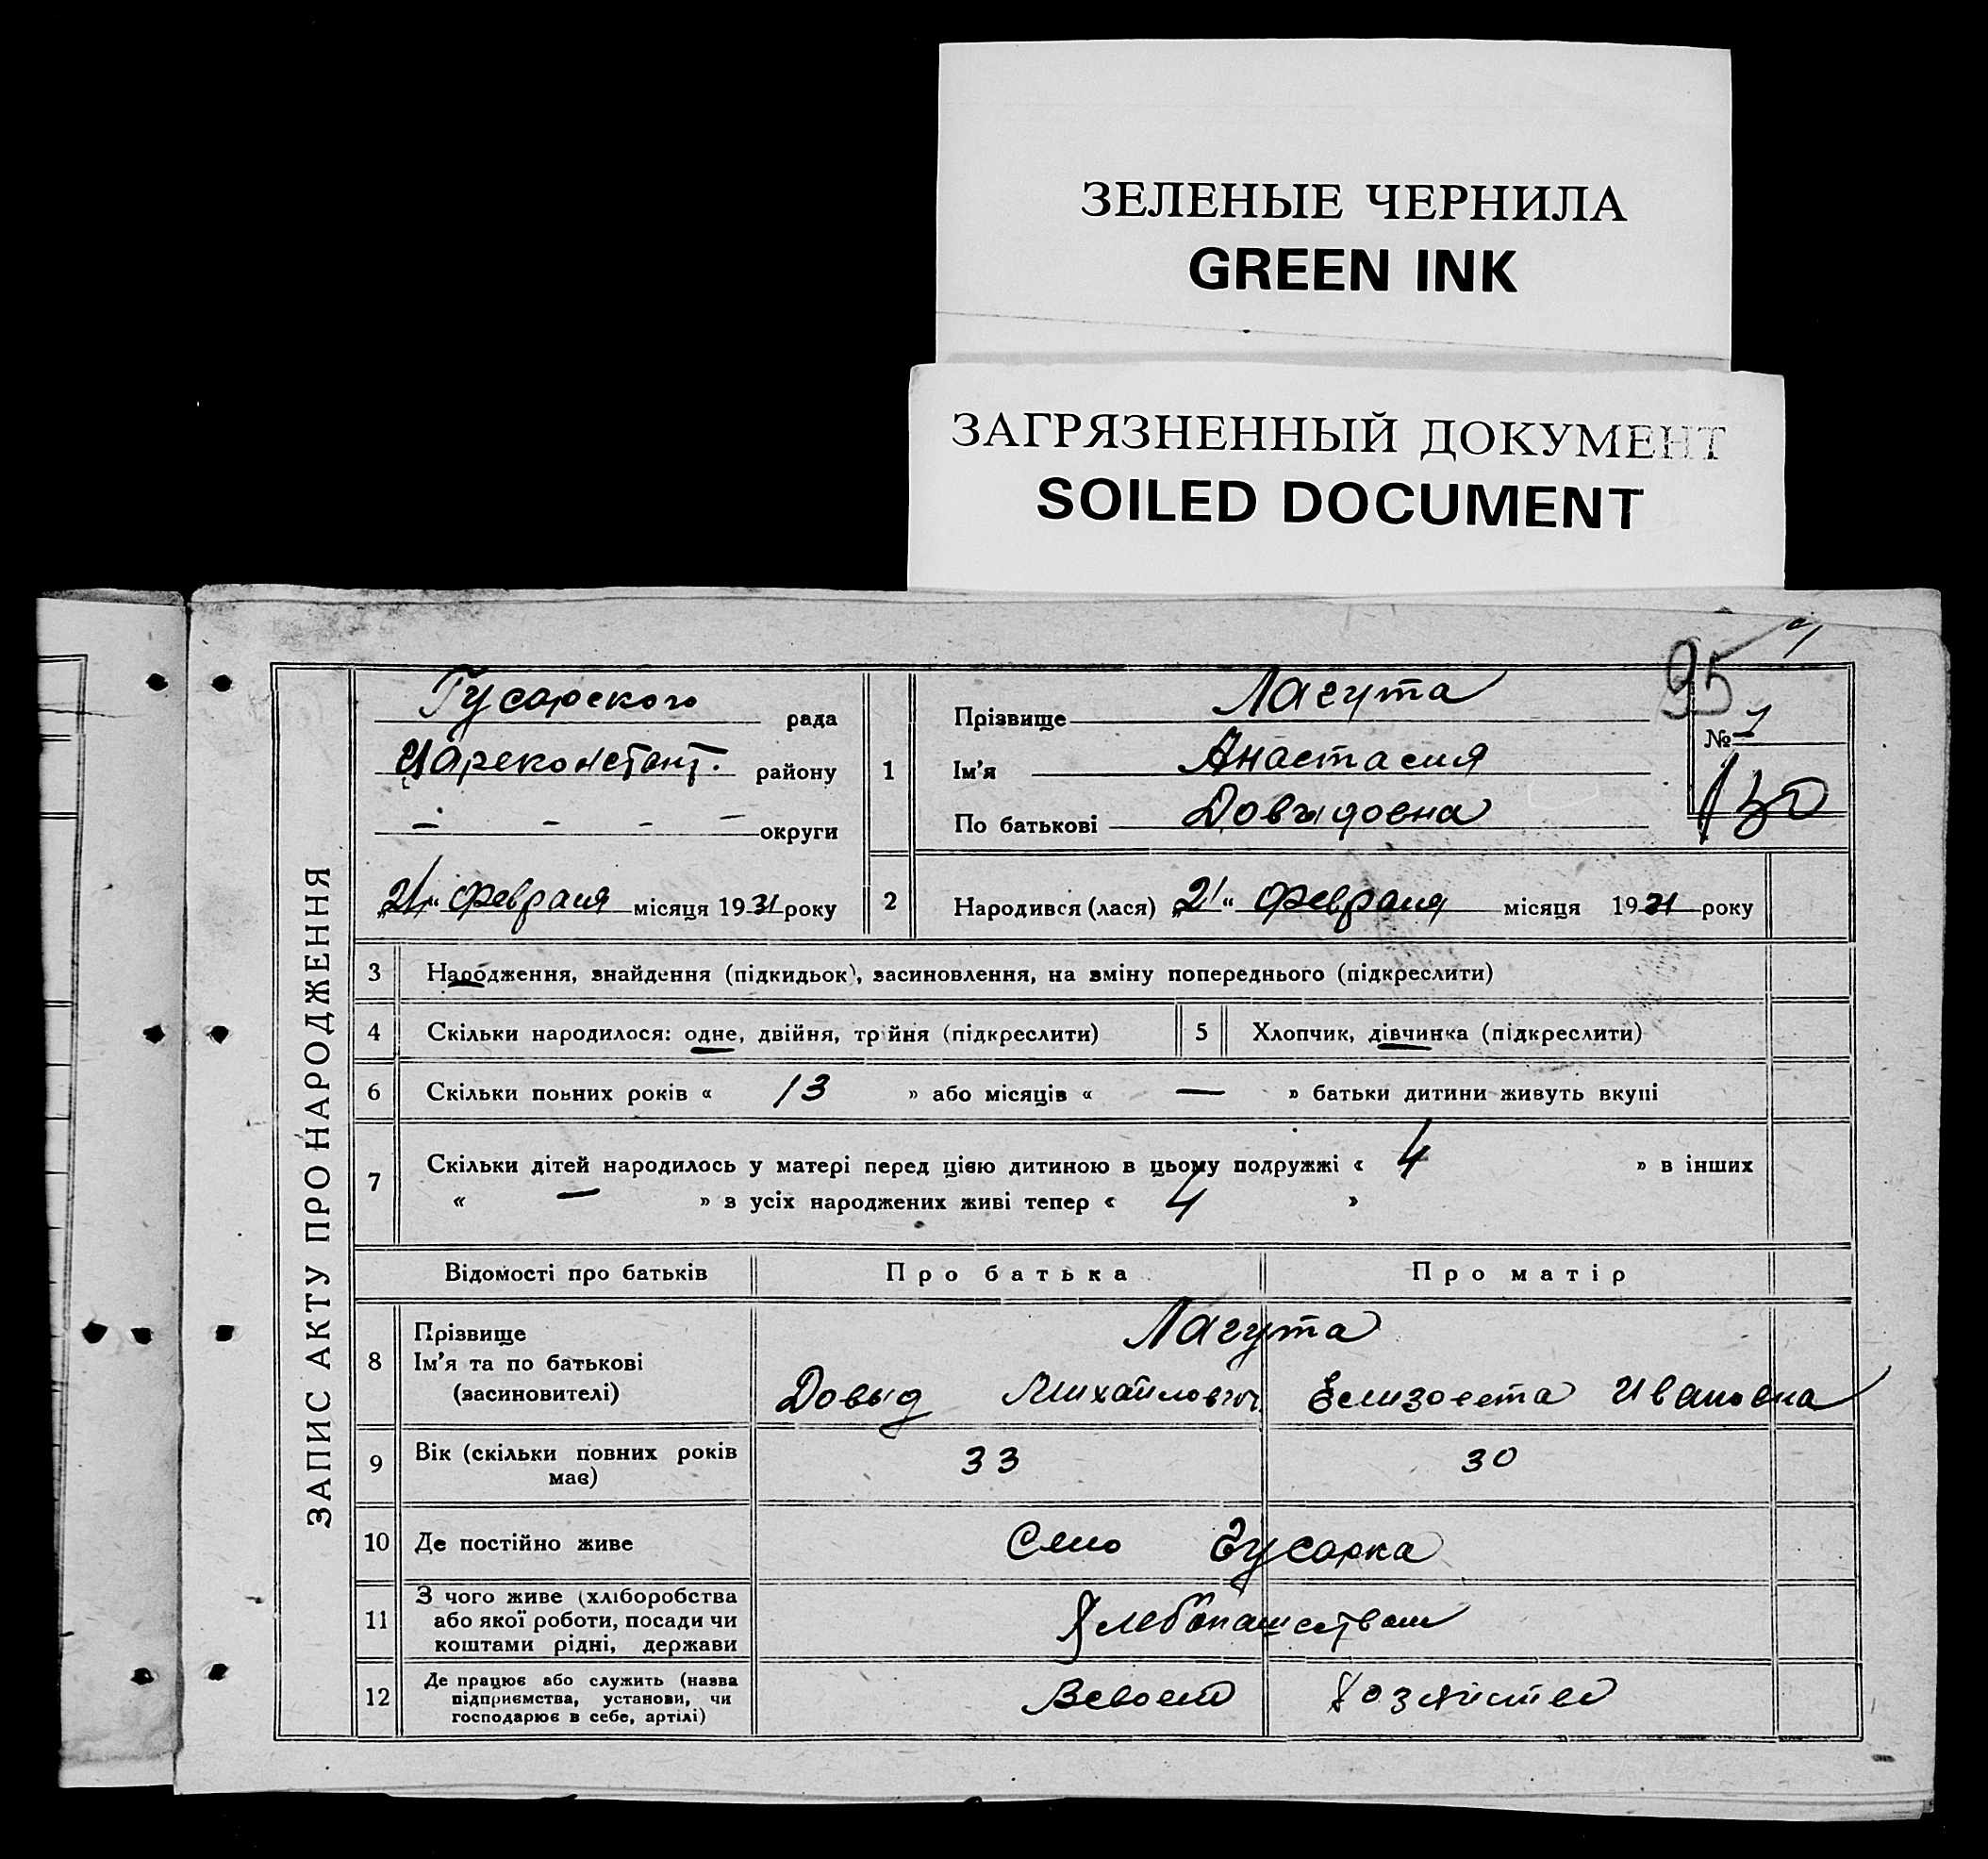 ЗЕЛЕНЫЕ ЧЕРНИЛА
GREEN INK
ЗАГРЯЗНЕННЫЙ ДОКУМЕНТ
SOILED DOCUMENT
95
ЗАПИС АКТУ ПРО НАРОДЖЕННЯ
Гусарского рада
Цареконстант. району
- - - - округи
„21“ февраля місяця 1931 року
1
Прізвище Лагута
Ім'я Анастасия
По батькові Довыдовна
№ 7
130
2 Народився (лася) „21“ февраля місяця 1931 року
3 Народження, знайдення (підкидьок), засиновлення, на зміну попереднього (підкреслити)
4 Скільки народилося: одне, двійня, трійня (підкреслити) 5 Хлопчик, дівчинка (підкреслити)
6 Скільки повних років « 13 » або місяців « — » батьки дитини живуть вкупі
7 Скільки дітей народилось у матері перед цією дитиною в цьому подружжі « 4 » в інших
« — » в усіх народжених живі тепер « 4 »
Відомості про батьків Про батька Про матір
8 Прізвище Лагута
Ім'я та по батькові
(засиновителі) Довыд Михайлович Елизовета Ивановна
9 Вік (скільки повних років
має) 33 30
10 Де постійно живе Село Гусарка
11 З чого живе (хліборобства
або якої роботи, посади чи
коштами рідні, держави Хлебопашеством
12 Де працює або служить (назва
підприємства, установи, чи
господарює в себе, артілі) Всвоем хозяйстве